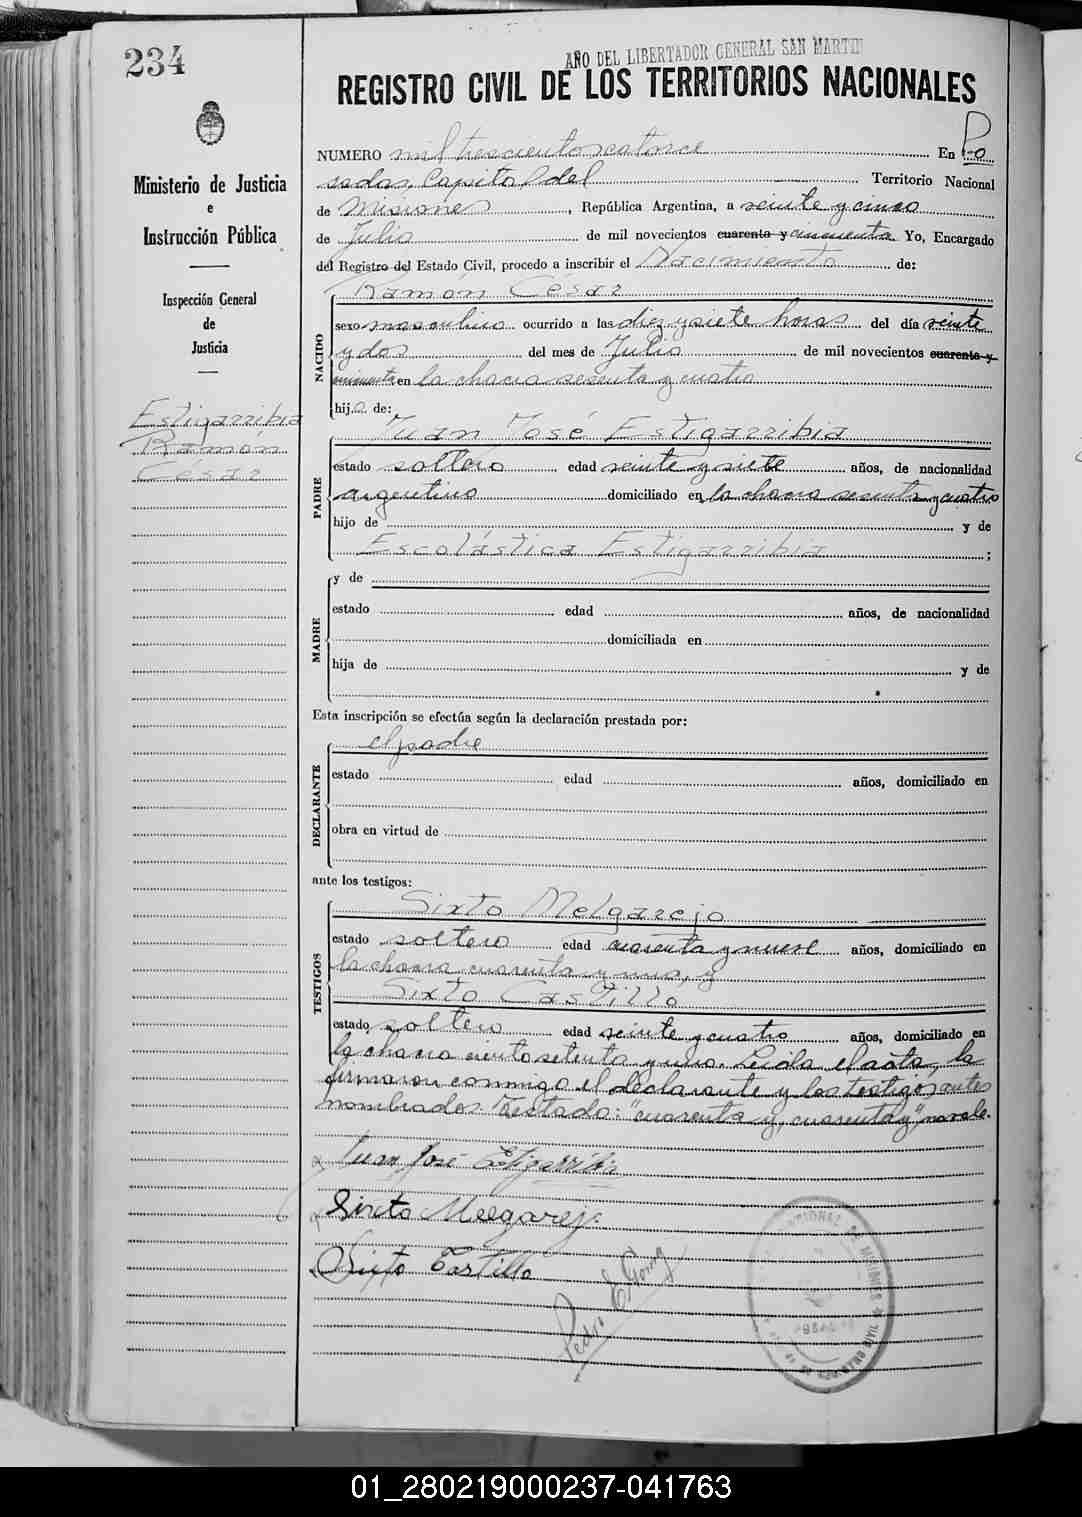 234
AÑO DEL LIBERTADOR GENERAL SAN MARTIN
REGISTRO CIVIL DE LOS TERRITORIOS NACIONALES
Ministerio de Justicia
e
Instrucción Pública
Inspección General
de
Justicia
Estigarribia
Ramón
Cesar
NUMERO mil trescientos catorce En Po
sadas, Capital del Territorio Nacional
de Misiones, República Argentina, a veinte y cinco
de Julio de mil novecientos cuarenta y cincuenta Yo, Encargado
del Registro del Estado Civil, procedo a inscribir el Nacimiento de:
NACIDO
Ramón César
sexo masculino ocurrido a las diez y siete horas del día veinte
y dos del mes de Julio de mil novecientos cuarenta y
cincuenta en la chacra sesenta y cuatro
hijo de:
PADRE
Juan José Estigarribia
estado soltero edad veinte y siete años, de nacionalidad
argentino domiciliado en la chacra sesenta y cuatro
hijo de y de
Escolástica Estigarribia ;
MADRE
y de
estado edad años, de nacionalidad
domiciliada en
hija de y de
Esta inscripción se efectúa según la declaración prestada por:
DECLARANTE
el padre
estado edad años, domiciliado en
obra en virtud de
ante los testigos:
TESTIGOS
Sixto Melgarejo
estado soltero edad cuarenta y nueve años, domiciliado en
la chacra cuarenta y una, y
Sixto Castillo
estado soltero edad veinte y cuatro años, domiciliado en
la chacra ciento setenta y una. Leída el acta, la
firmaron conmigo el declarante y los testigos antes
nombrados. Testado: "cuarenta y, cuarenta y", no vale.
Juan José Estigarribia
Sixto Melgarejo
Sixto Castillo
Pedro E
01_280219000237-041763